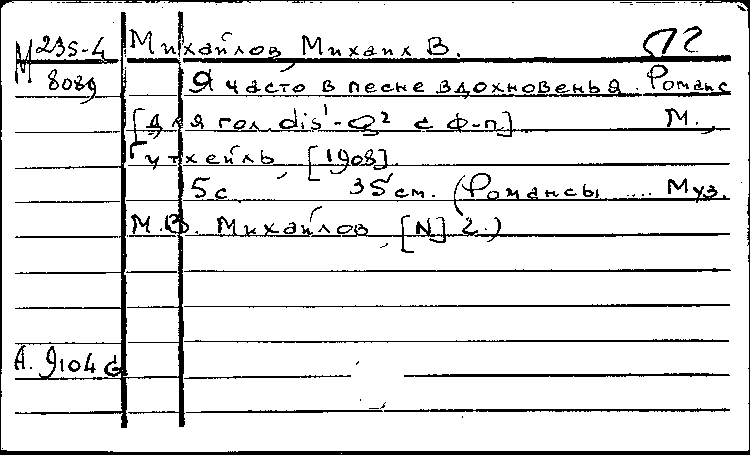 М 235-4 Михайлов, Михаил В.
8089 Я часто в песне вдохновенья. Романс
[для гол. dis¹-a² с ф-п.] М.,
Гутхейль, [1908].
5 с. 35 см. (Романсы ... Муз.
М.В. Михайлов, [N] 2.)
А. 9104 G